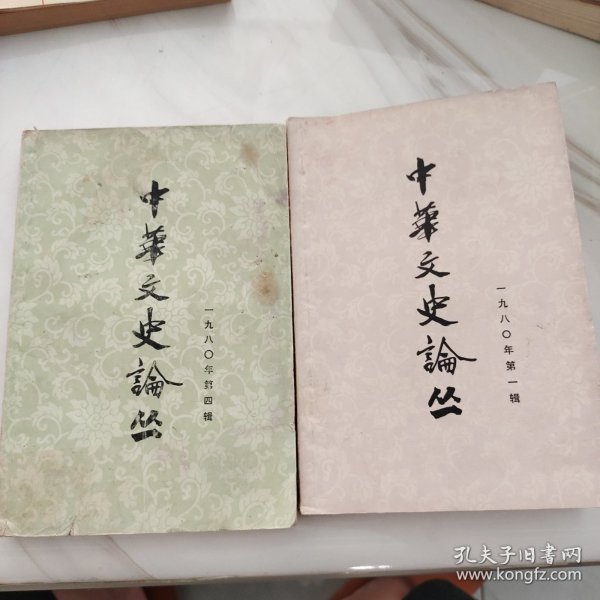 中華文史論丛
一九八〇年第四辑
中華文史論丛
一九八〇年第一辑
孔夫子旧书网
www.kongfz.com